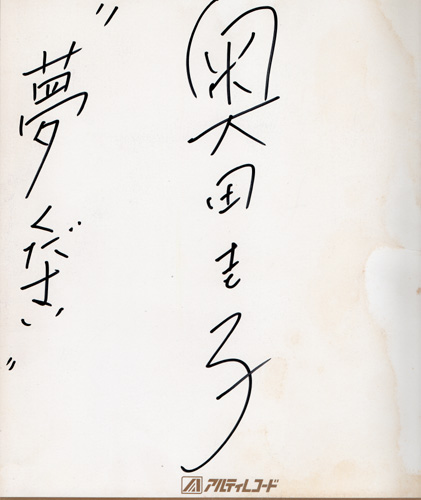 奥田圭子
"夢ください"
アルティレコード